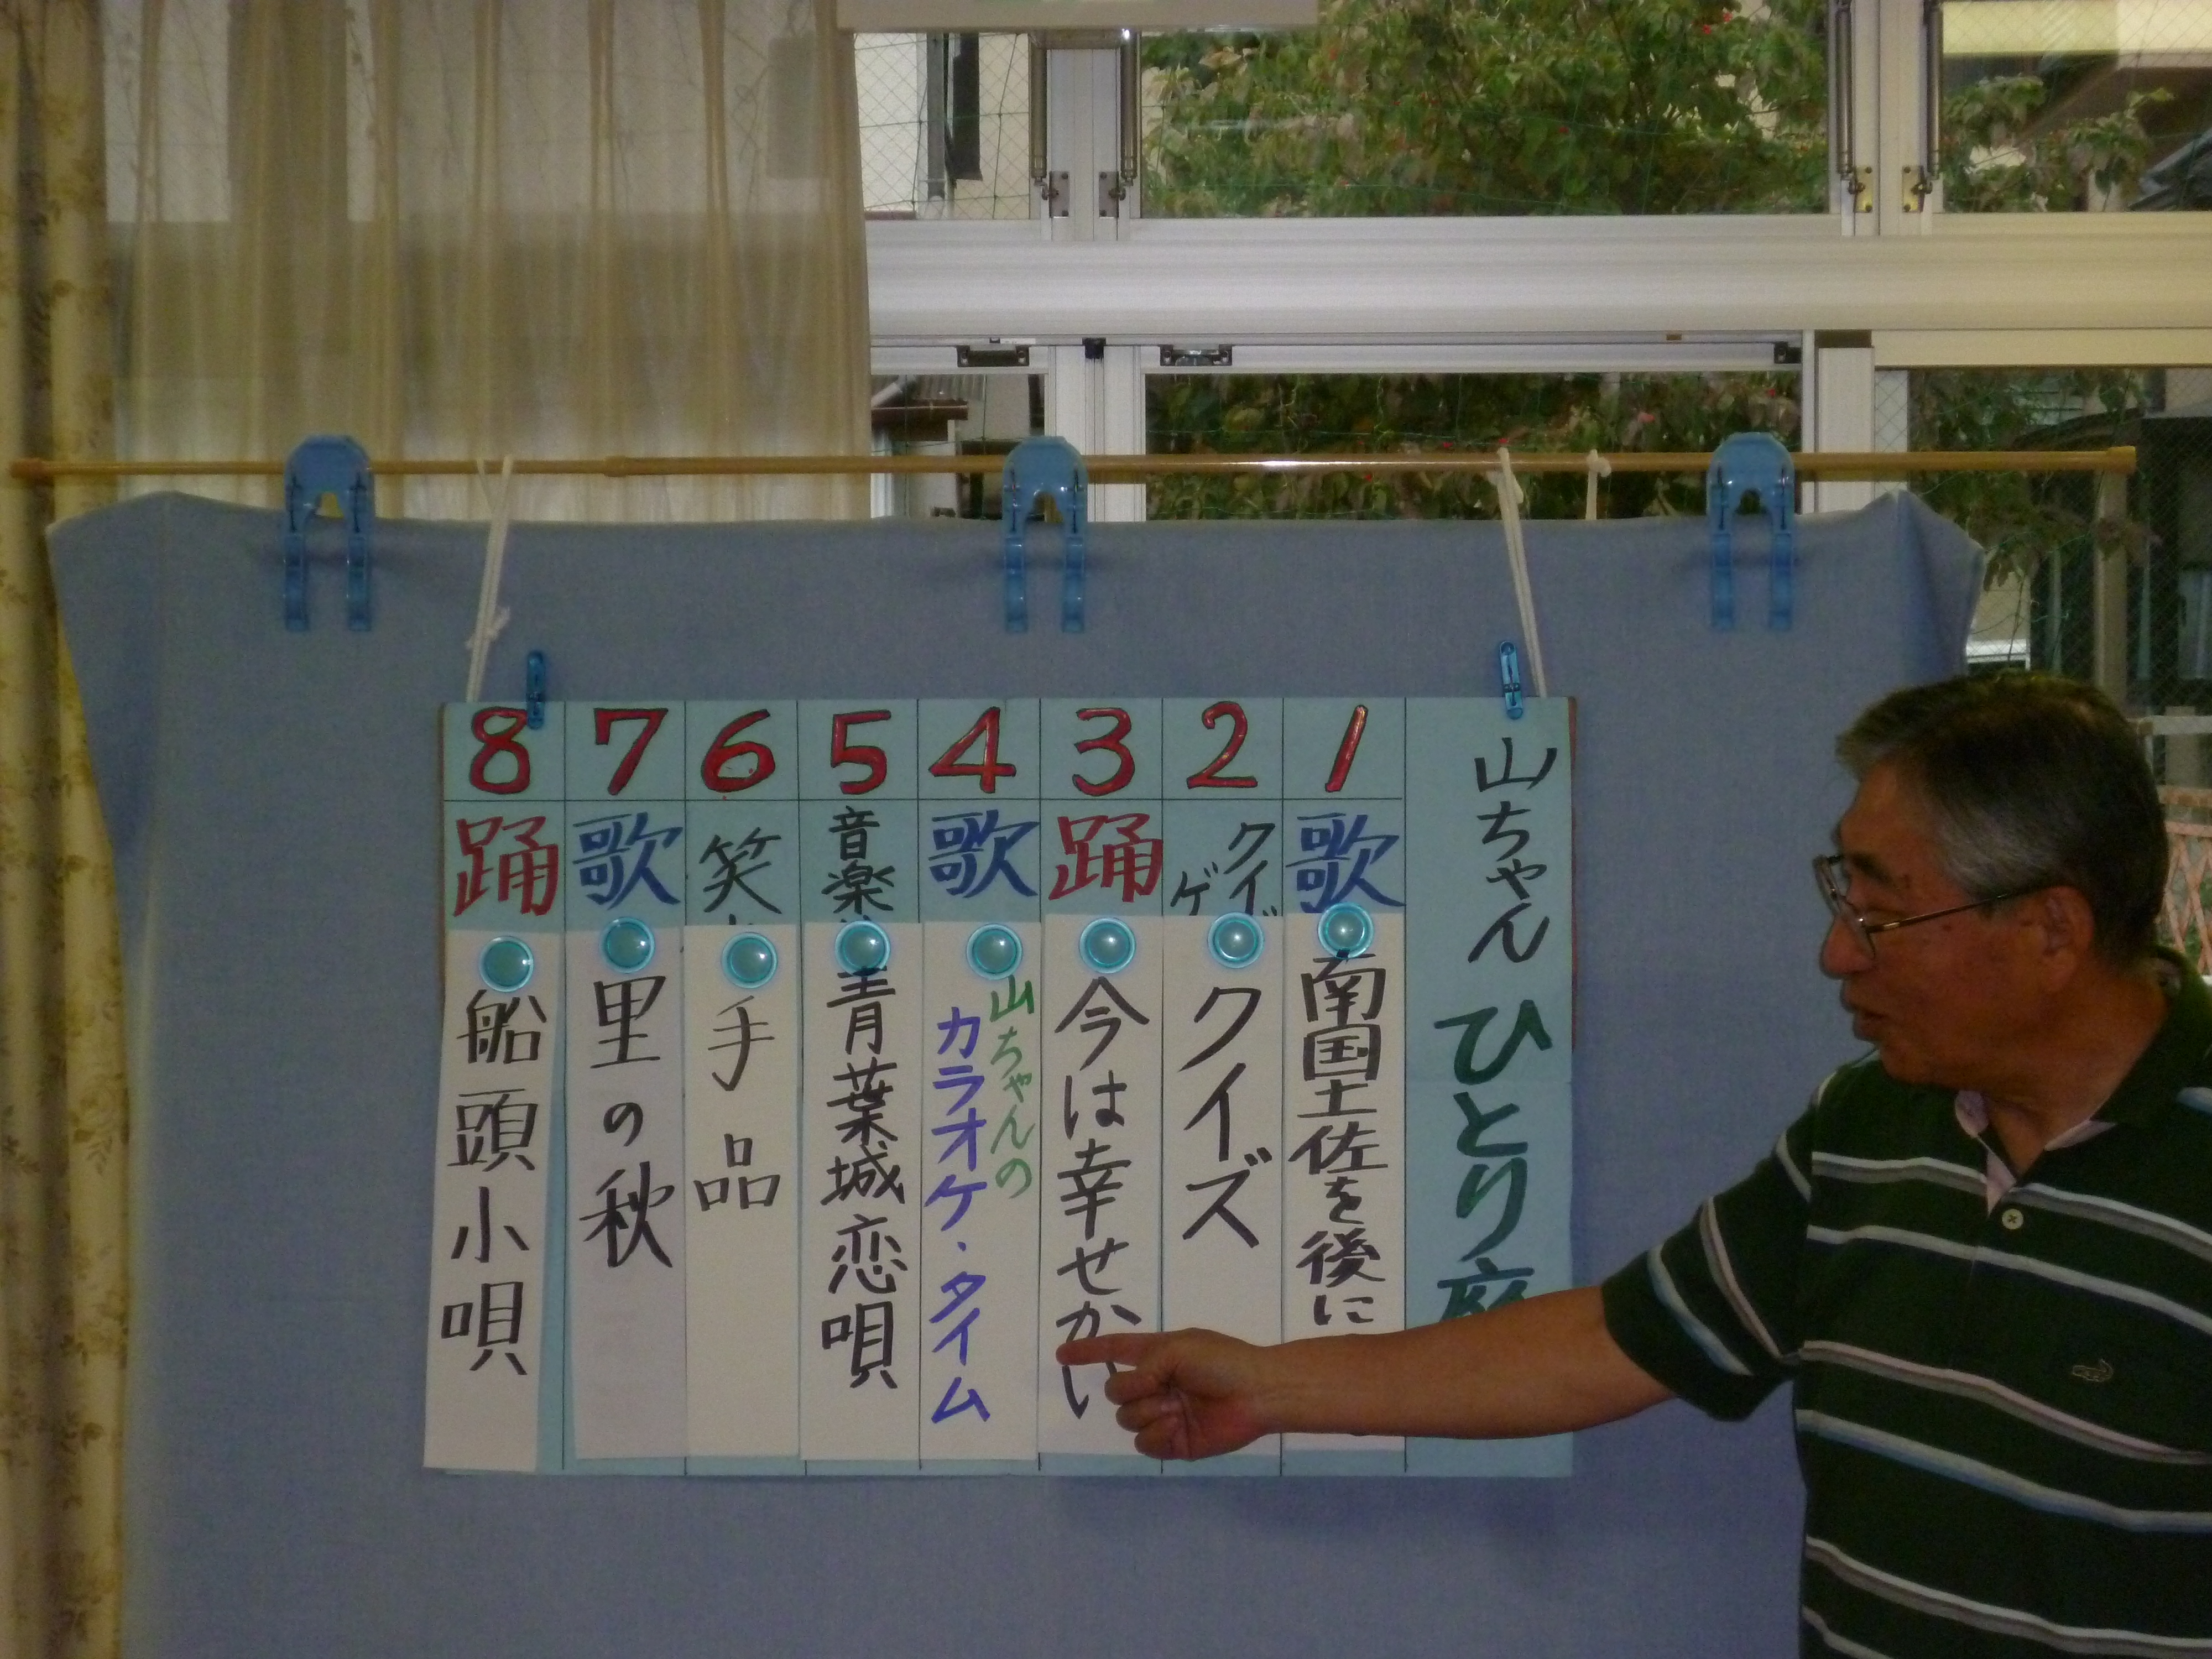 山ちゃん ひとり座
1 歌 南国土佐を後に
2 クイズ
クイズ
3 踊 今は幸せかい
4 歌 山ちゃんの
カラオケ・タイム
5 音楽 青葉城恋唄
6 笑 手品
7 歌 里の秋
8 踊 船頭小唄